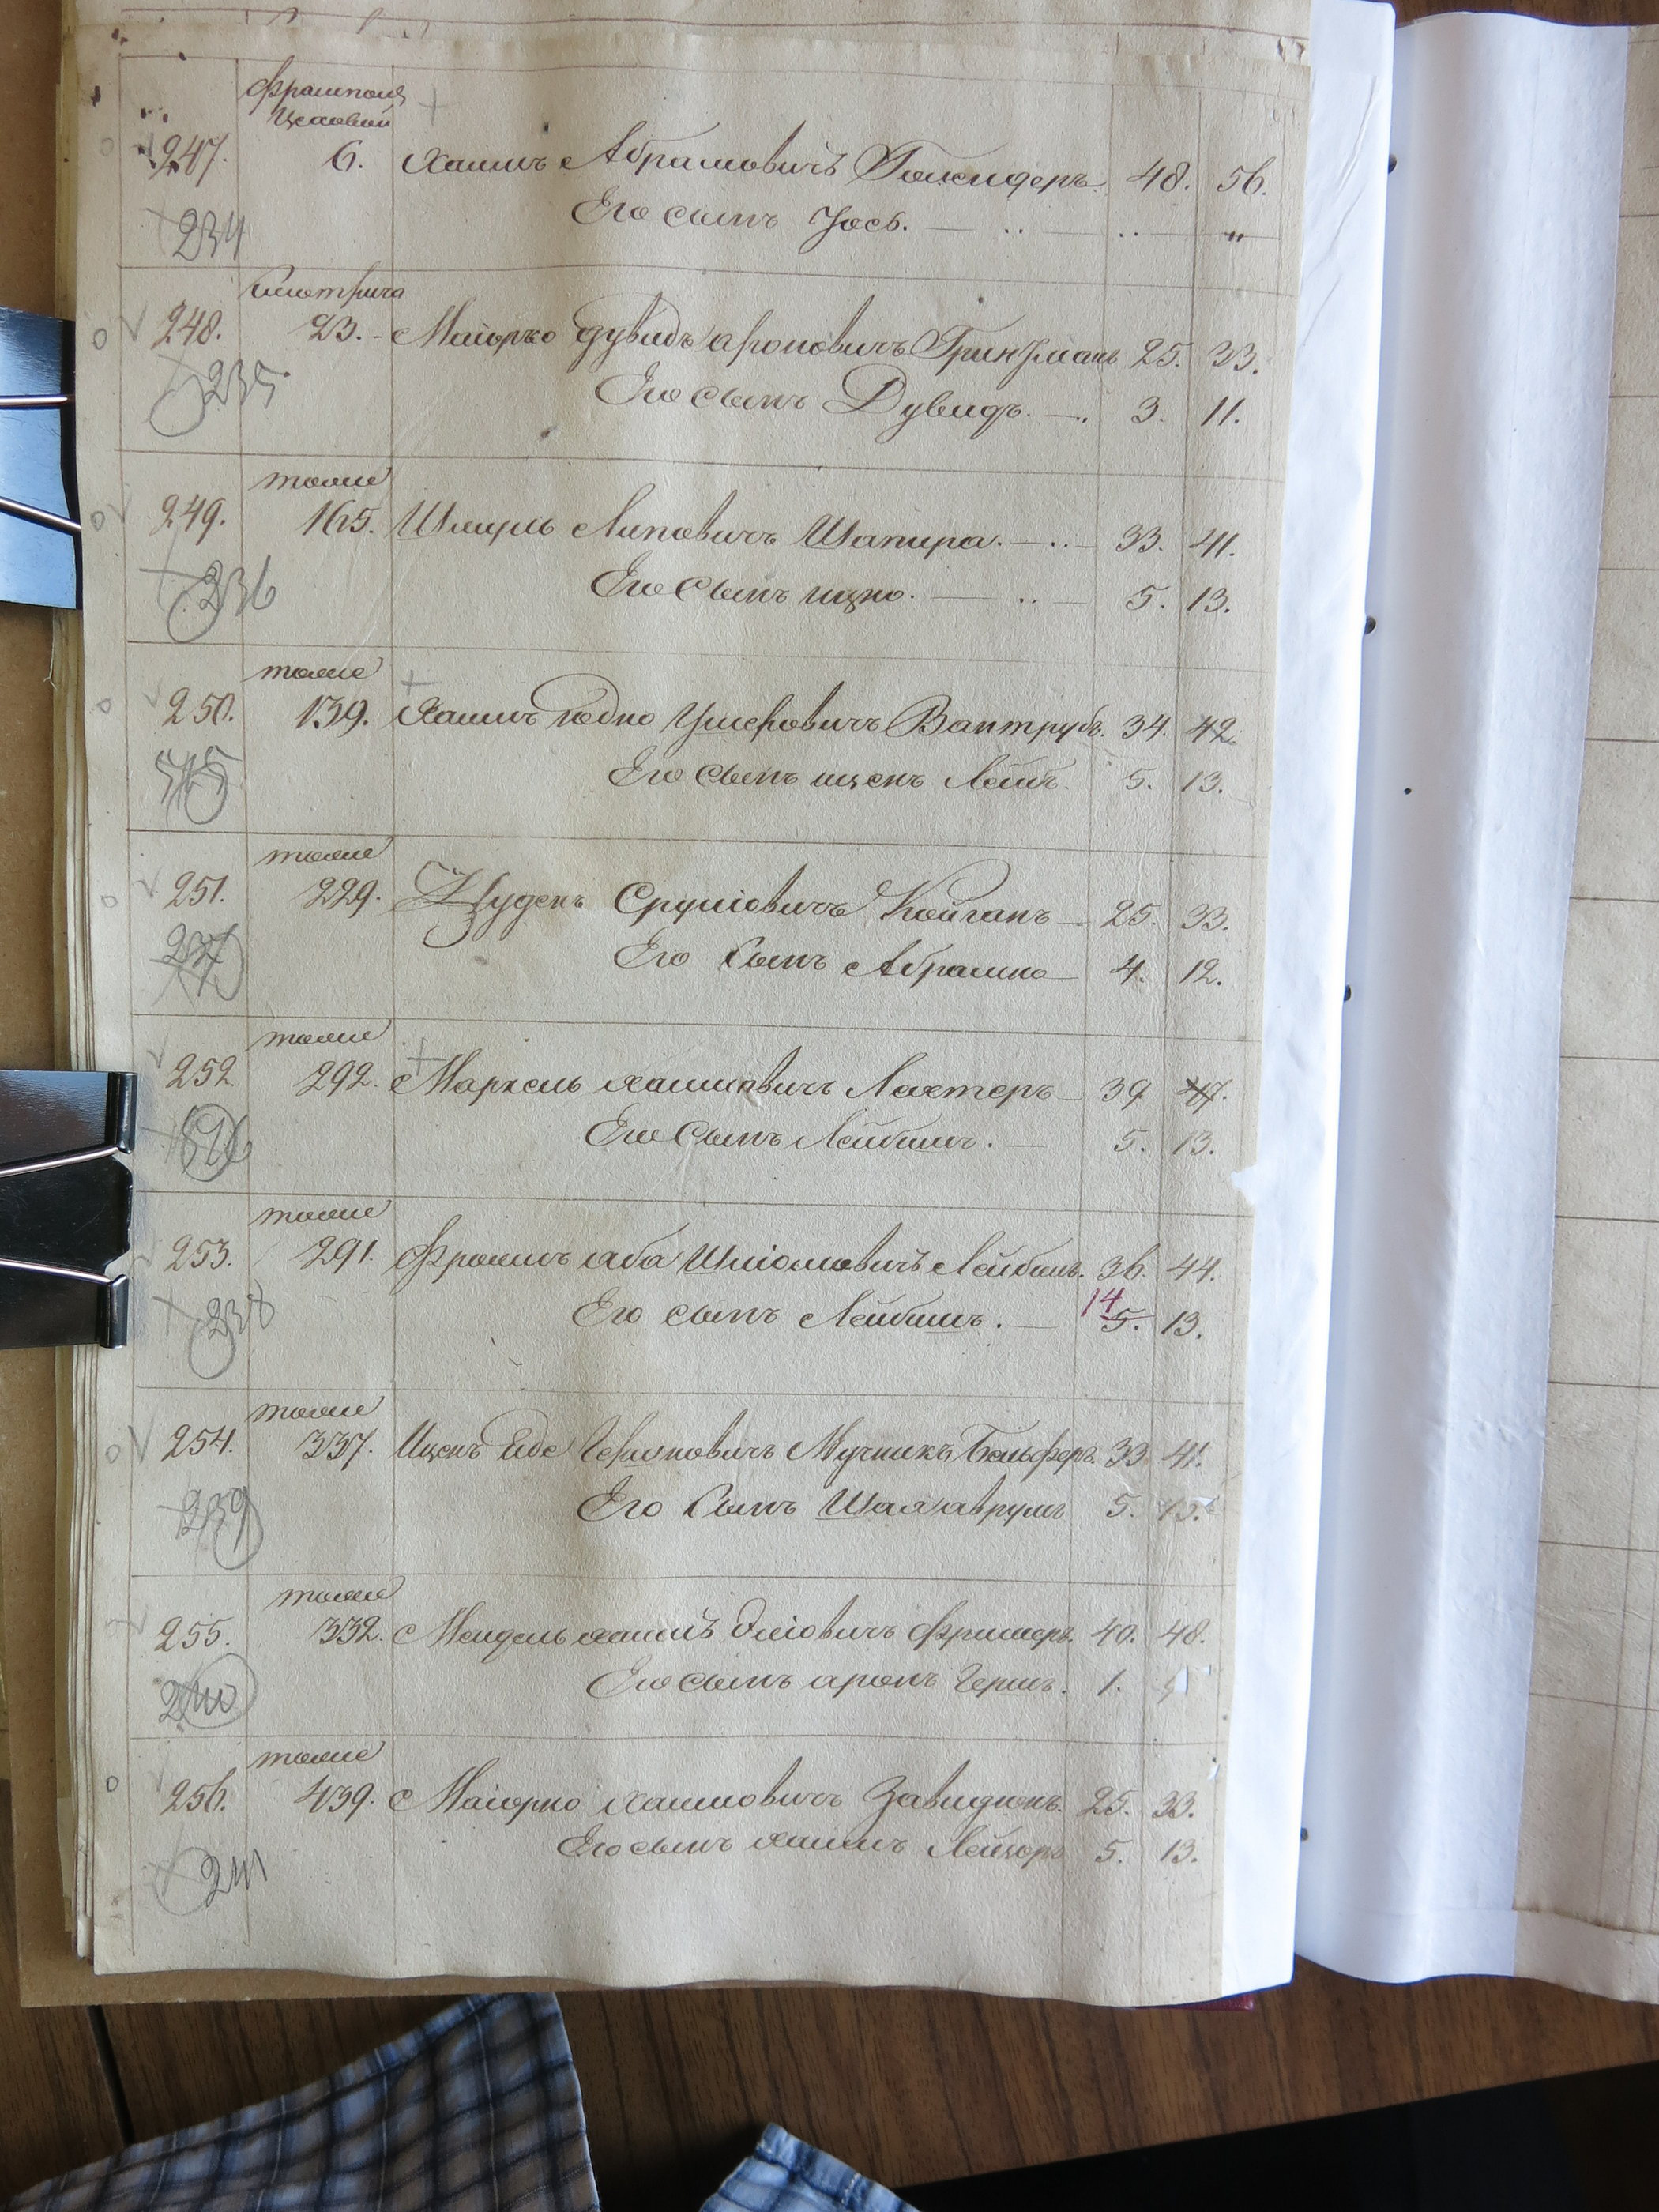 Цеховой
247. 6. Хаимъ Абрамовичъ 48. 56.
Его сынъ Іось. — .. — .. — „
234
248. 23. Маіорко Дувидъ Ароновичъ Гринманъ 25. 33.
235
Его сынъ Дувидъ. — .. 3. 11.
тоже
249. 165. Шмуль Липовичъ Шапира. — .. — 33. 41.
236
Его сынъ ицко. — .. — 5. 13.
тоже
250. 139. Хаимъ Юдко Ушеровичъ Вайтрубъ. 34. 42.
Его сынъ ицекъ Лейб. 5. 13.
515
тоже
251. 229. Сруліовичъ Койганъ — 25. 33.
237
Его сынъ Абрамко — 4. 12.
тоже
252. 292. Мархель Хаимовичъ Лехтеръ — 39 47.
516
Его сынъ Лейбишъ. — 5. 13.
тоже
253. 291. Фроимъ аба Шліомовичъ Лейбишъ. 36. 44.
14
Его сынъ Лейбишъ. — 5. 13.
238
тоже
254. 337. Ицекъ Мучникъ 33 41.
239
Его сынъ Шая аврумъ 5. 13.
тоже
255. 332. Мендель хаимъ Фришеръ. 40. 48.
Его сынъ аронъ Гершъ. 1.
240
тоже
256. 439. Маіорко Хаимовичъ Завидюкъ. 25. 33.
Его сынъ Хаимъ Лейзоръ 5. 13.
241